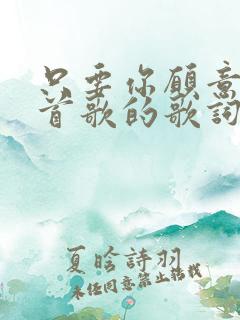 只要你愿意
首歌的歌词
夏晗詩羽
未任同意禁止搭载